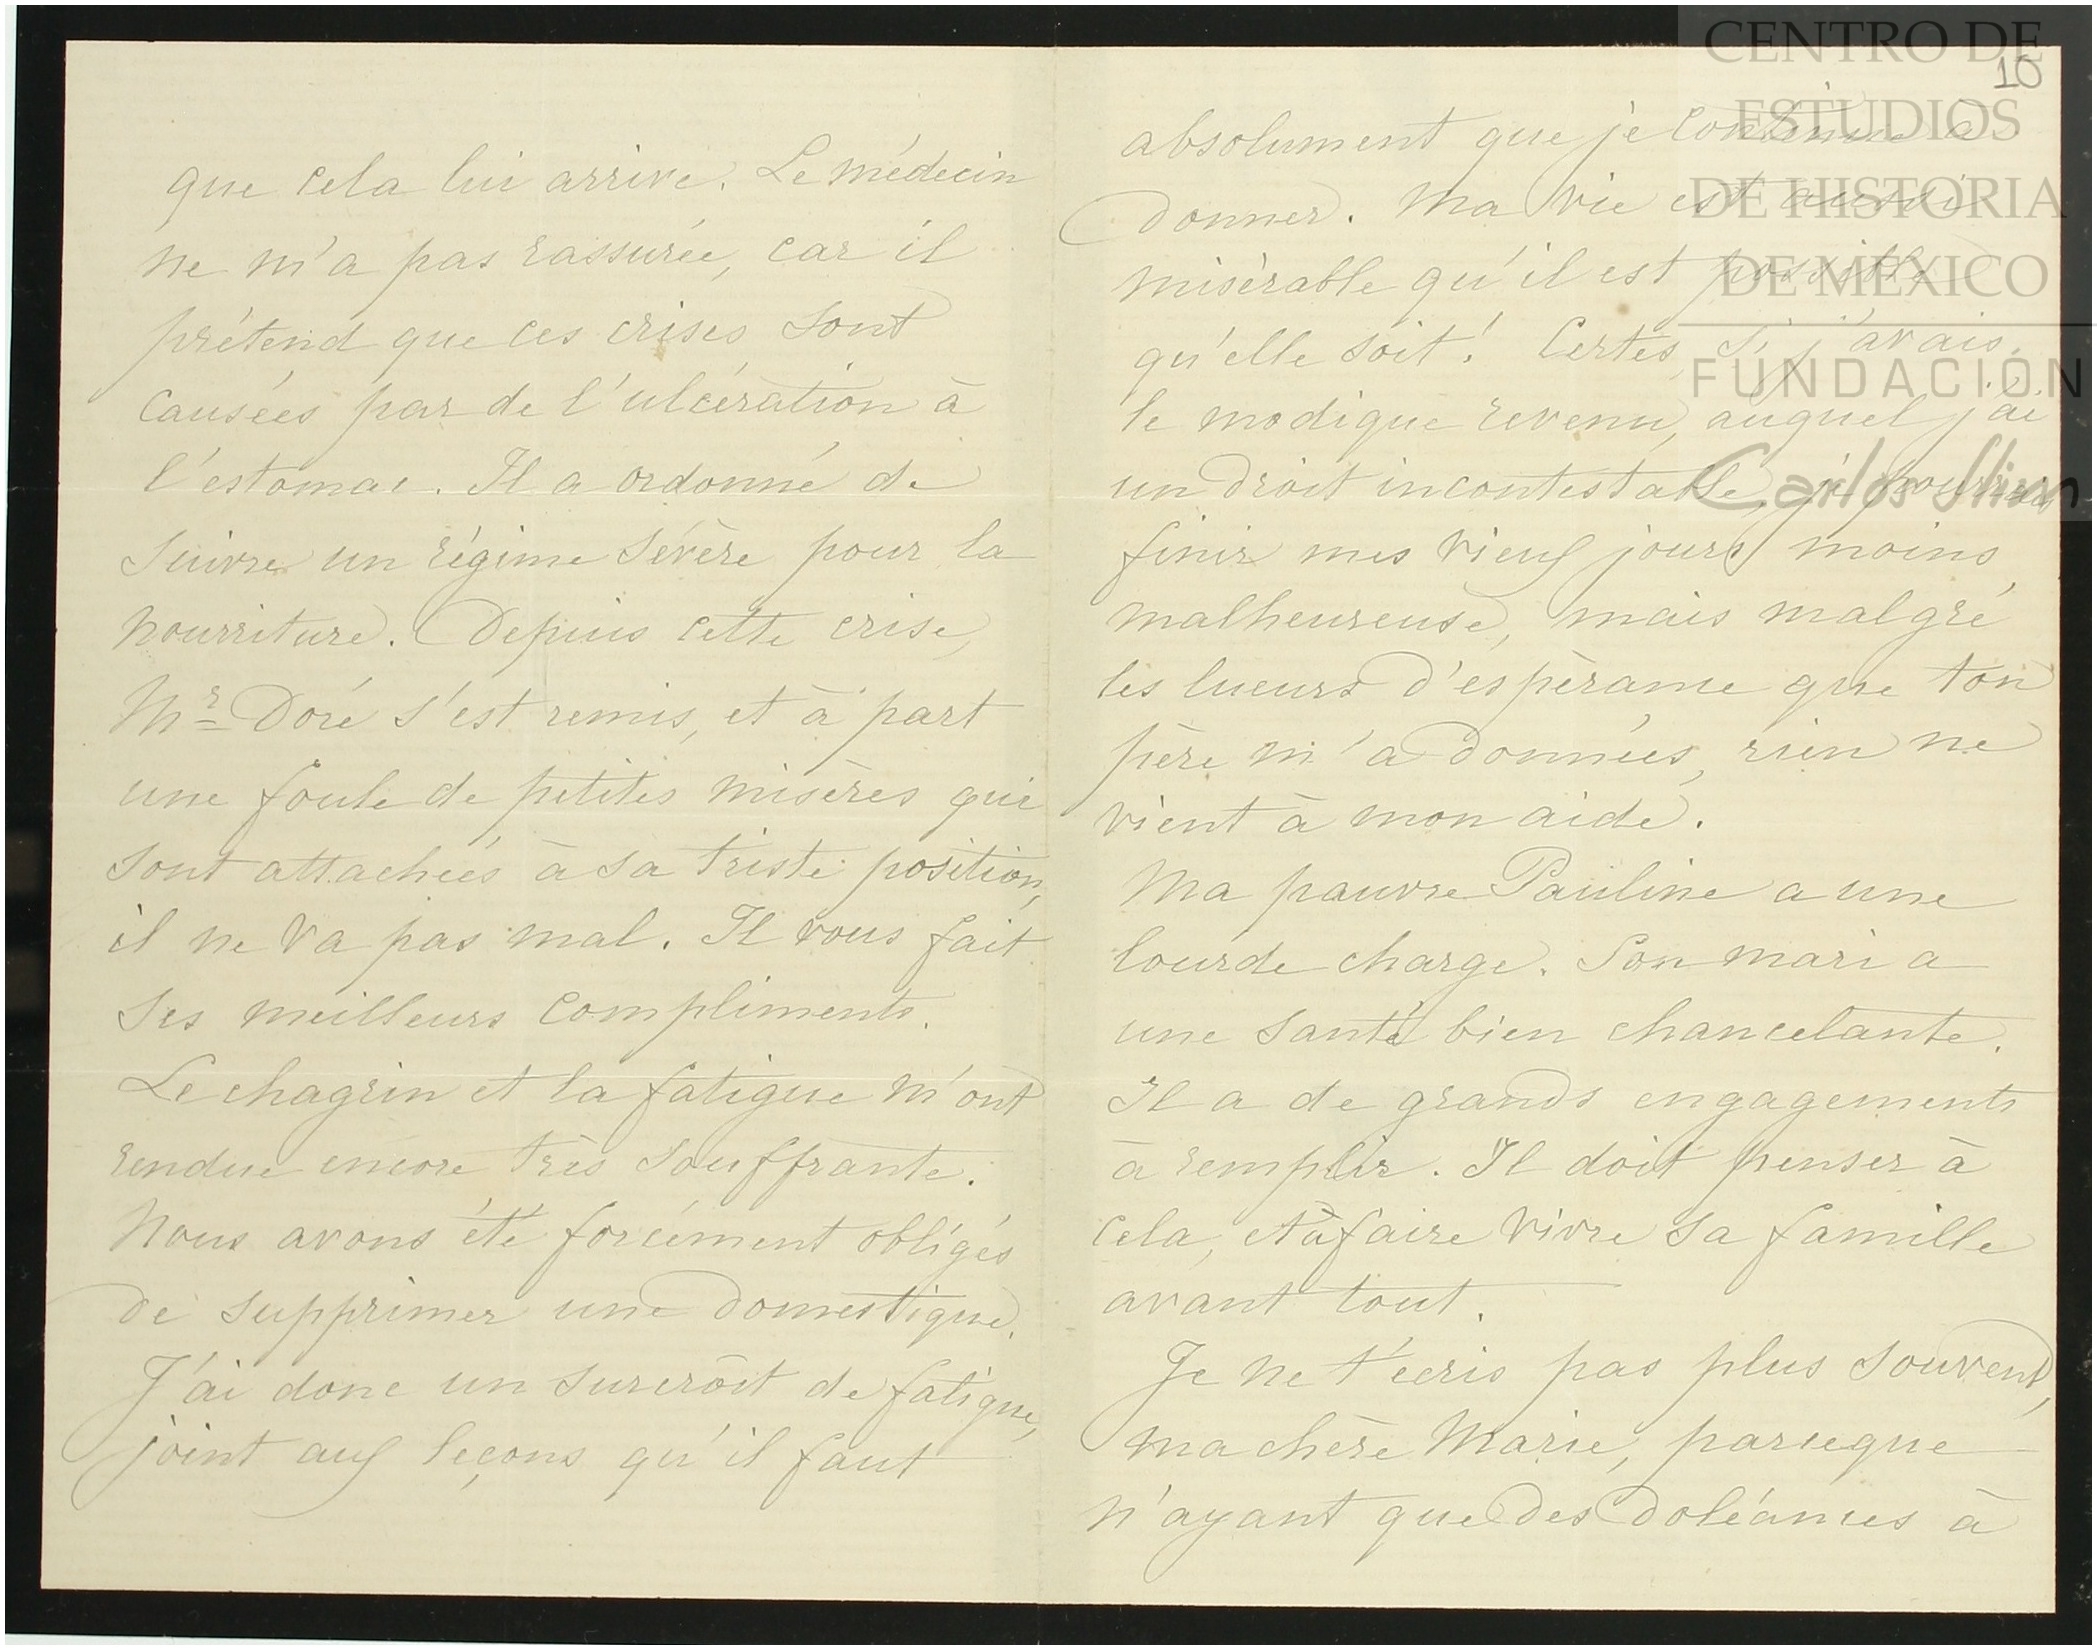 que cela lui arrive. Le médecin
ne m'a pas rassurée, car il
prétend que ces crises sont
causées par de l'ulcération à
l'estomac. Il a ordonné de
suivre un régime sévère pour la
nourriture. Depuis cette crise,
Mr Doré s'est remis, et à part
une foule de petites misères qui
sont attachées à sa triste position,
il ne va pas mal. Il vous fait
ses meilleurs compliments.
Le chagrin et la fatigue m'ont
rendue encore très souffrante.
Nous avons été forcément obligés
de supprimer une domestique.
J'ai donc un surcroît de fatigue,
joint aux leçons qu'il faut
10
absolument que je continue à
donner. Ma vie est aussi
misérable qu'il est possible
qu'elle soit! Certes, si j'avais,
le modique revenu, auquel j'ai
un droit incontestable, je pourrais
finir mes vieux jours moins
malheureuse, mais malgré
les lueurs d'espérance que ton
père m'a données, rien ne
vient à mon aide.
Ma pauvre Pauline a une
lourde charge. Son mari a
une santé bien chancelante.
Il a de grands engagements
à remplir. Il doit penser à
cela, et à faire vivre sa famille
avant tout.
Je ne t'écris pas plus souvent,
ma chère Marie, parceque
n'ayant que des doléances à
CENTRO DE
ESTUDIOS
DE HISTORIA
DE MÉXICO
FUNDACIÓN
Carlos Slim